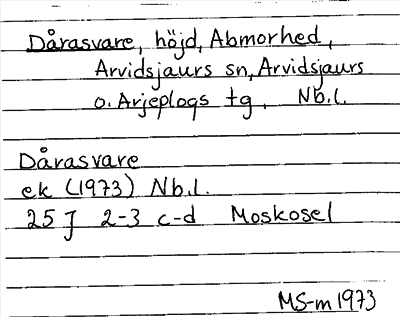 Dårasvare, höjd, Abmorhed,
Arvidsjaurs sn, Arvidsjaurs
o. Arjeplogs tg, Nb.l.
Dårasvare
ek (1973) Nb.l.
25 J 2-3 c-d Moskosel
MS-m 1973